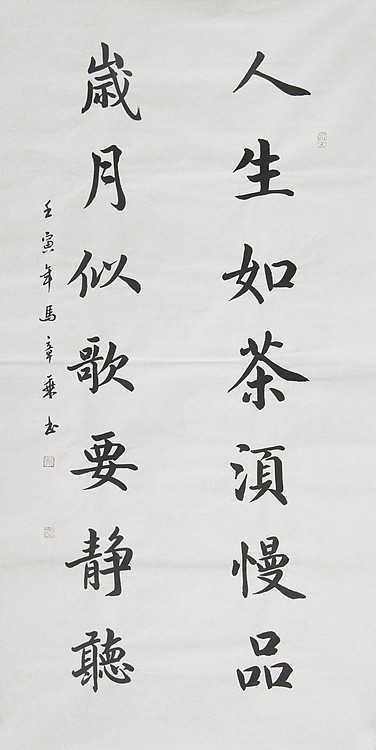 人生如茶須慢品
歲月似歌要静聽
壬寅年馬章乘书